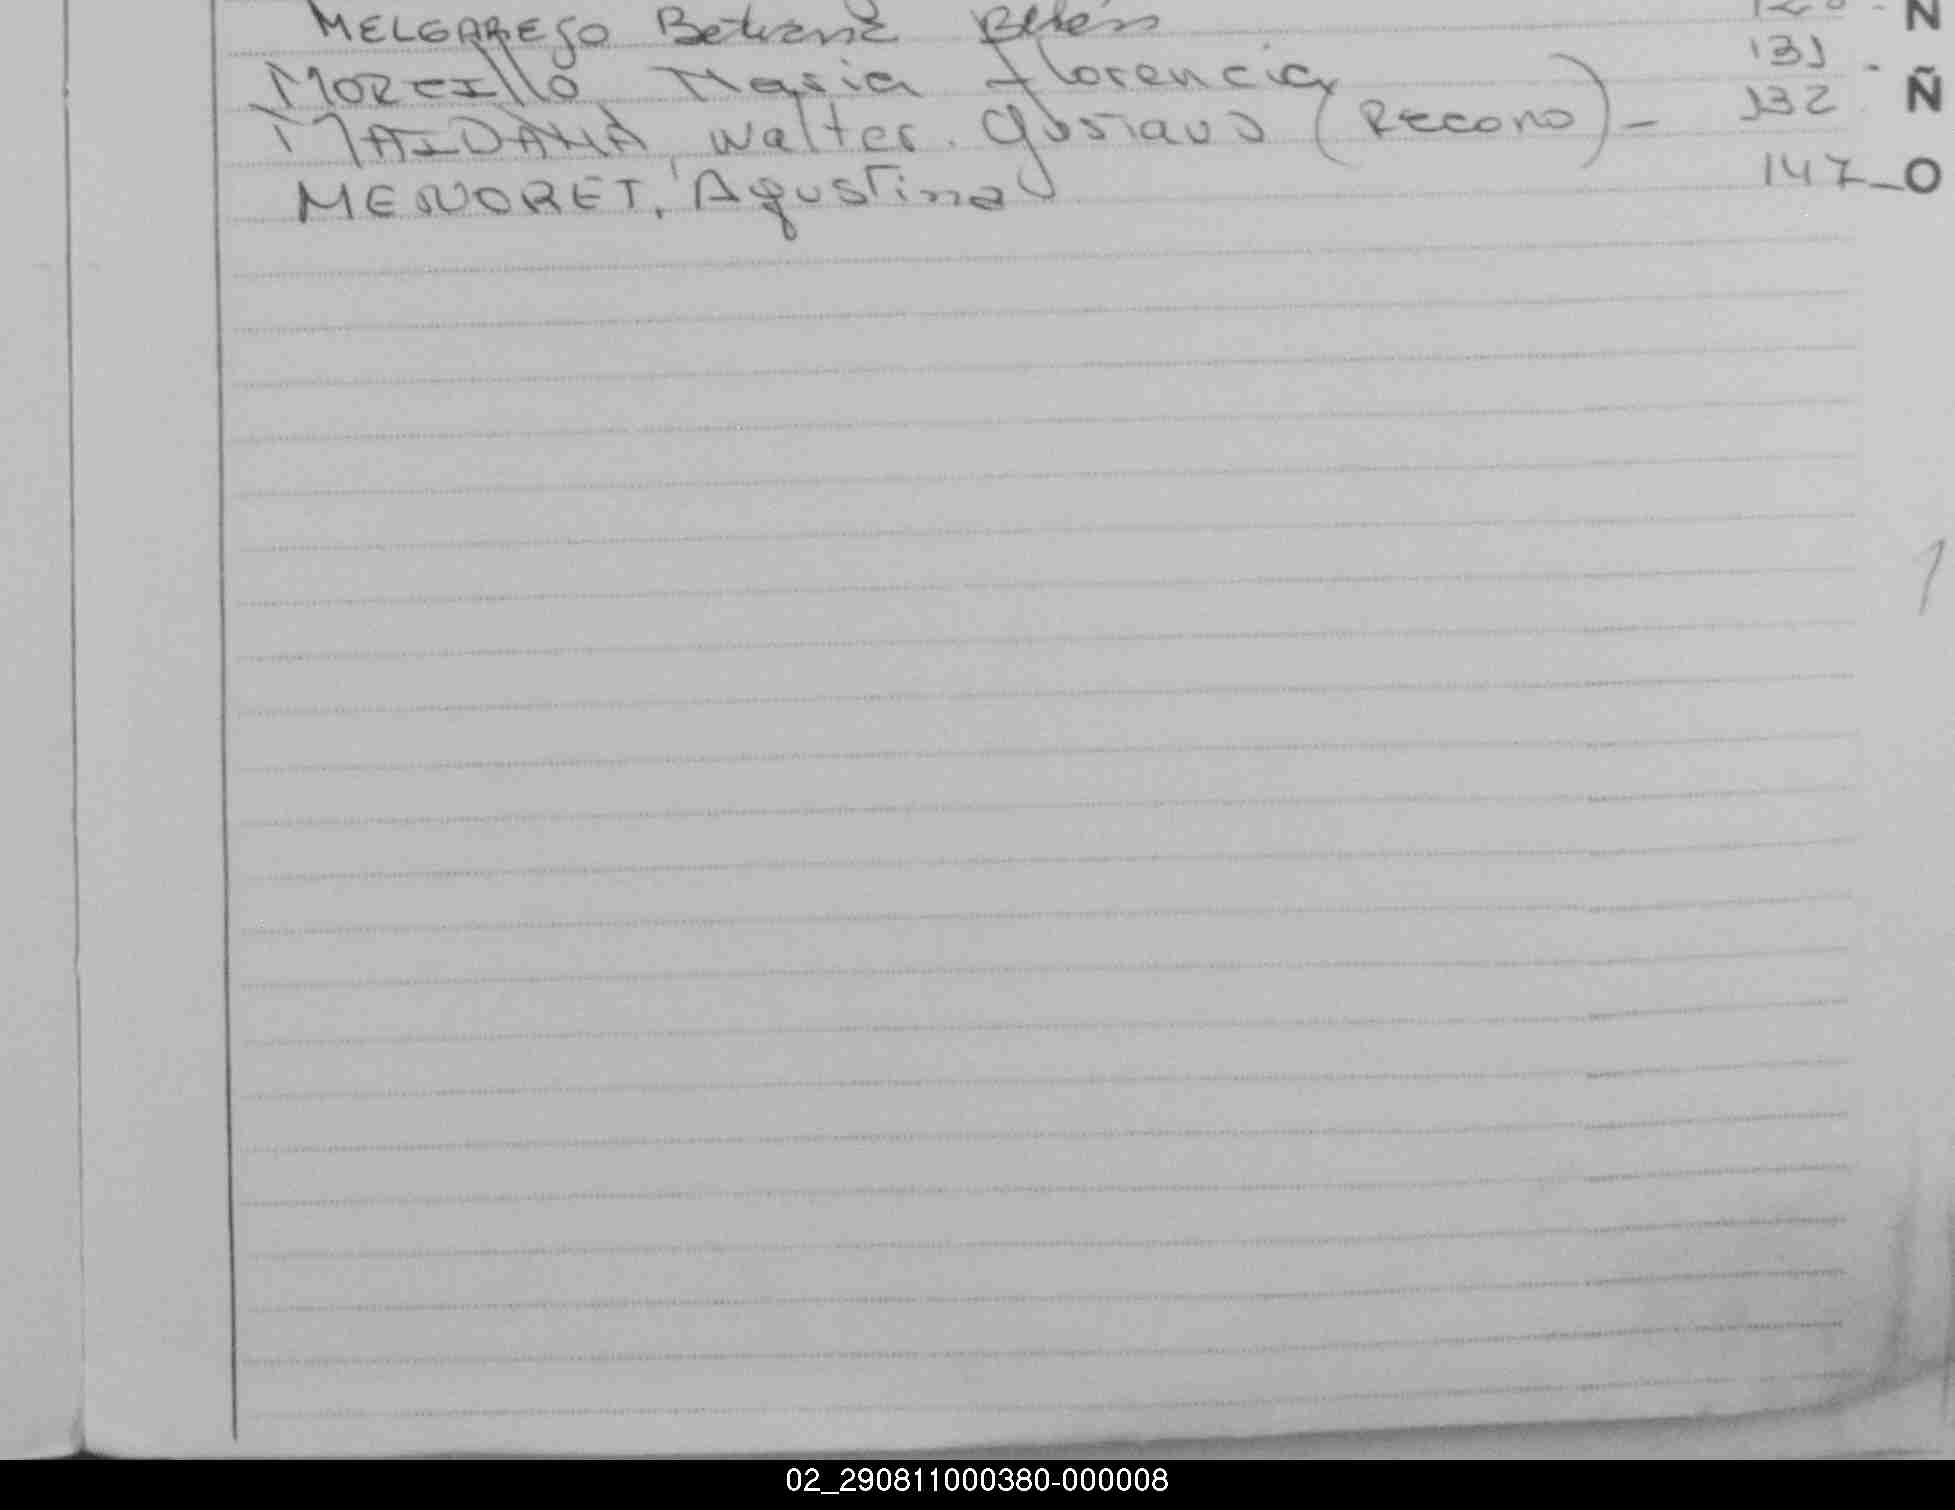 MELGAREJO Betiana Belén N
MORCILLO Maria Florencia 131 -
MAIDANA, Walter. Gustavo (Recono) - 132 Ñ
MENORET, Agustina 147 - O
02_290811000380-000008